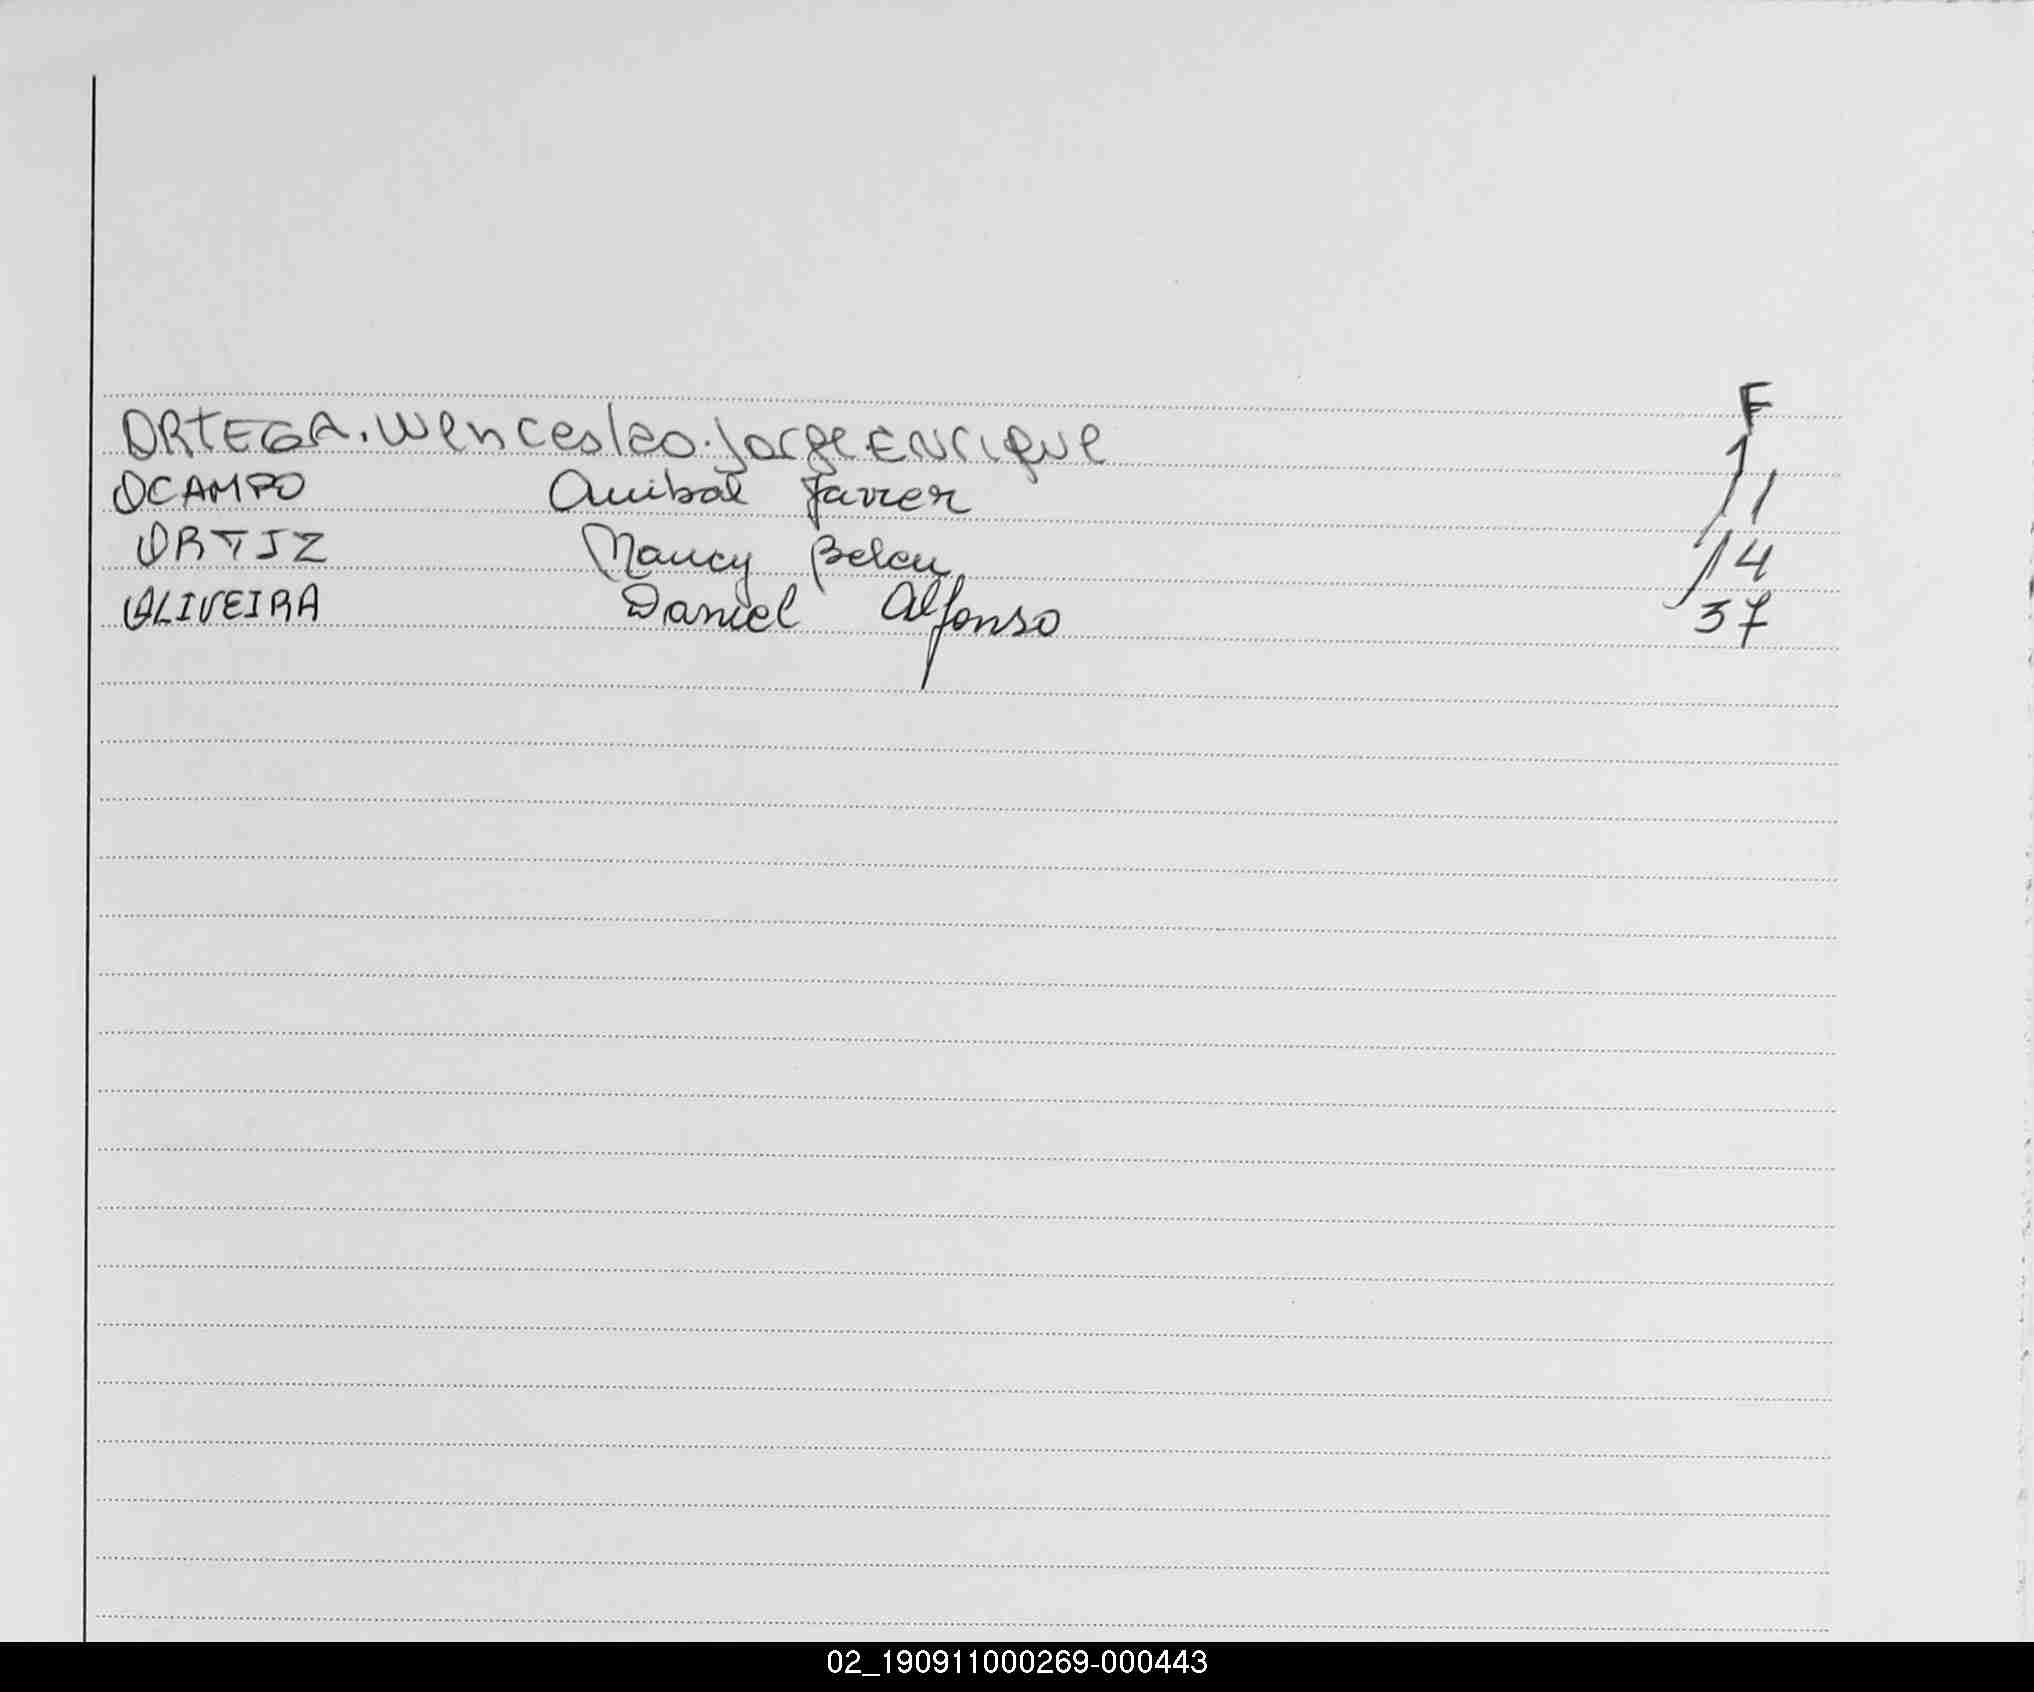 F
ORTEGA. Wenceslao. Jorge ENrique 1
OCAMPO Anibal Javier 11
ORTIZ Nancy Belen 14
OLIVEIRA Daniel Alfonso 37
02_190911000269-000443